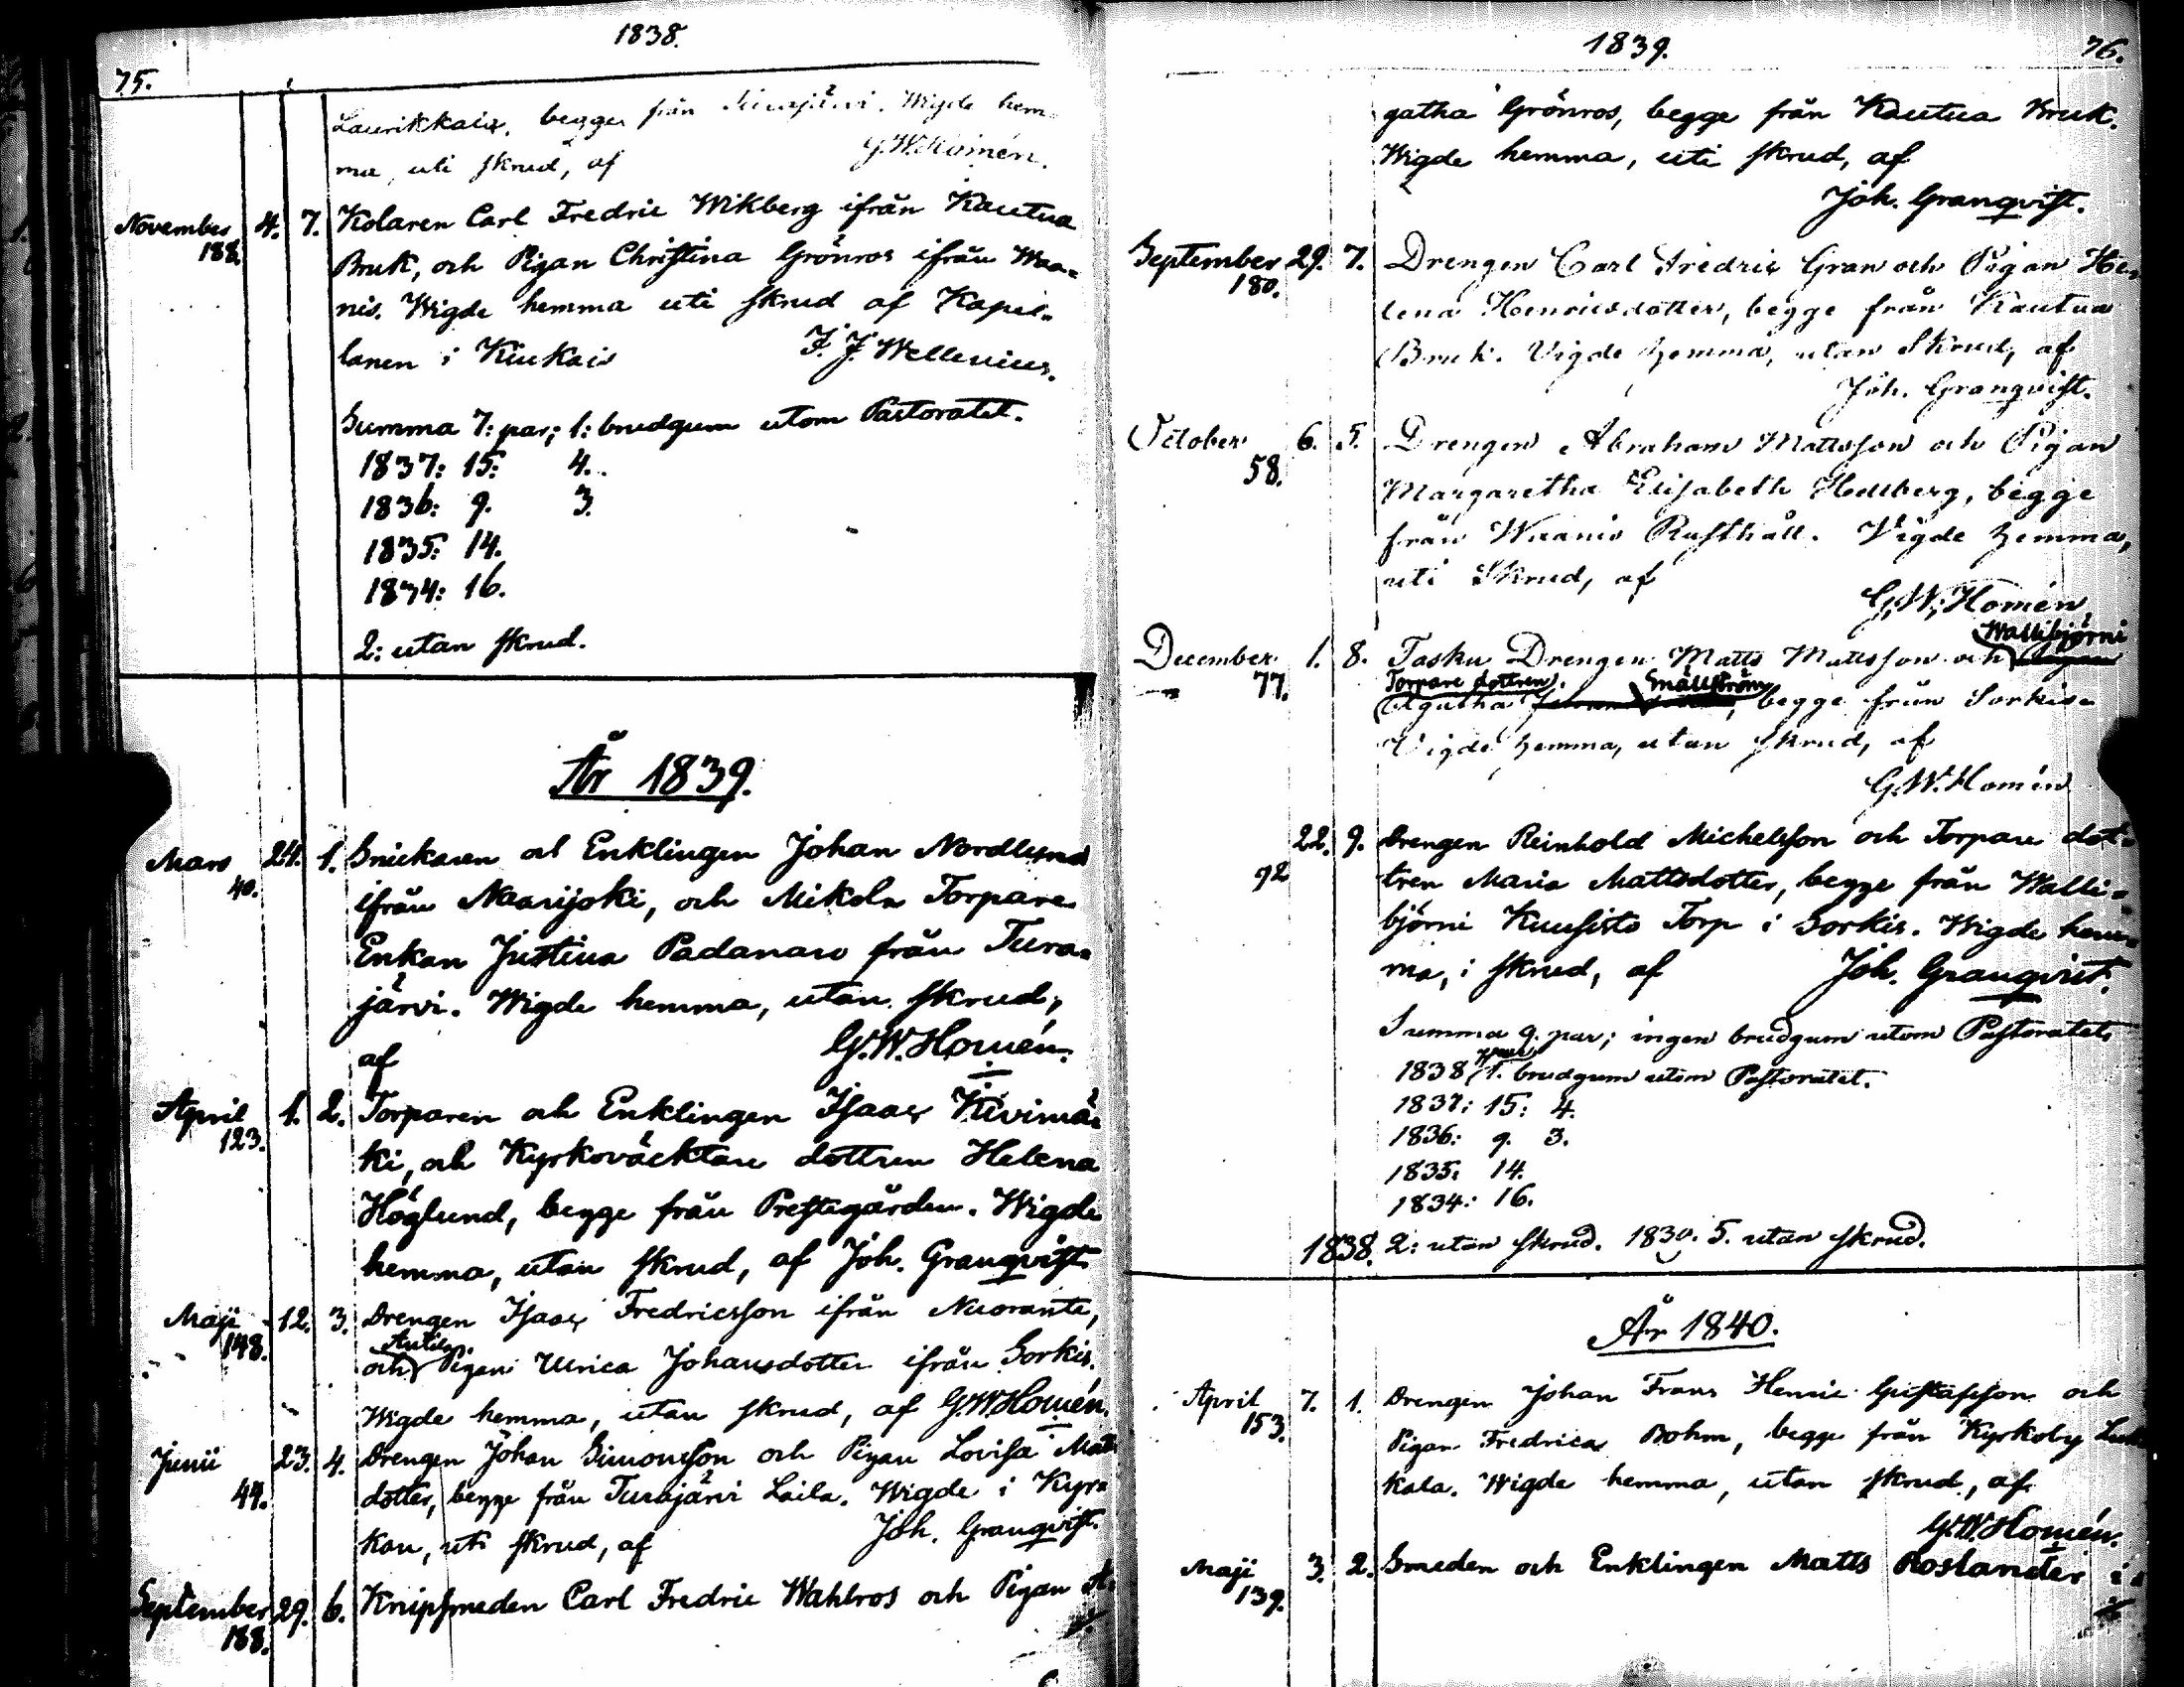 1838.
75.
Laurikkala, begge från Turajärvi. Wigde hem-
ma, uti skrud, af G.W.Homén.
November 4. 7. Kolaren Carl Fredric Wikberg ifrån Kautua
188. Bruk, och Pigan Christina Grönros ifrån Waa-
nis. Wigde hemma uti skrud af Kapel-
lanen i Kiukais F. J. Wellenius.
Summa 7: par; 1: brudgum utom Pastoratet.
1837: 15: 4.
1836: 9. 3.
1835: 14.
1834: 16.
2: utan skrud.
År 1839.
Mars 24. 1. Snickaren och Enklingen Johan Nordlund
40. ifrån Naarijoki, och Mikola Torpare
Enkan Justina Padanaro från Tura-
järvi. Wigde hemma, utan skrud,
af G.W.Homén.
April 1. 2. Torparen och Enklingen Isaac Kivimä-
123. ki, och Kyrkoväcktare dottren Helena
Höglund, begge från Prestegården. Wigde
hemma, utan skrud, af Joh. Granqvist
Maji 12. 3. Drengen Isaac Fredricsson ifrån Nuoranta,
148. Antila
och Pigan Ulrica Johansdotter ifrån Sorkis.
Wigde hemma, utan skrud, af G.W.Homén.
Junii 23. 4. Drengen Johan Simonsson och Pigan Lovisa Matts
44. dotter, begge från Turajärvi Laila. Wigde i Kyr-
kan, uti skrud, af Joh. Granqvist.
September 29. 6. Knipsmeden Carl Fredric Wahlros och Pigan A-
188.
1839.
76.
gatha Grönros, begge från Kautua Bruk.
Wigde hemma, uti skrud, af
Joh. Granqvist.
September 29. 7. Drengen Carl Fredric Gran och Pigan He-
180. lena Henricsdotter, begge från Kautua
Bruk. Vigde hemma, utan Skrud, af
Joh. Granqvist.
October 6. 5. Drengen Abraham Mattsson och Pigan
58. Margaretha Elisabeth Hellberg, begge
från Waanis Rusthåll. Vigde hemma,
uti Skrud, af
G.W.Homén.
Wallibjörni
December 1. 8. Tasku Drengen Matts Mattsson och Pigan
77. Torpare dottren Snällström
Agatha, begge från Sorkis.
Vigde hemma, utan skrud, af
G.W.Homén
22. 9. Drengen Reinhold Michelsson och Torpare dot-
92 tren Maria Mattsdotter, begge från Walli-
björni Kuusisto Torp i Sorkis. Wigde hem-
ma, i skrud, af Joh. Granqvist.
Summa 9. par; ingen brudgum utom Pastoratet,
7 par
1838, 1. brudgum utom Pastoratet.
1837: 15: 4.
1836: 9. 3.
1835: 14.
1834: 16.
1838. 2: utan skrud. 1839. 5. utan skrud.
År 1840.
April 7. 1. Drengen Johan Frans Henric Gustafsson och
153. Pigan Fredrica Bohm, begge från Kyrkoby
kala. Wigde hemma, utan skrud, af
G.W.Homén.
Maji 3. 2. Smeden och Enklingen Matts Roslander i-
139.